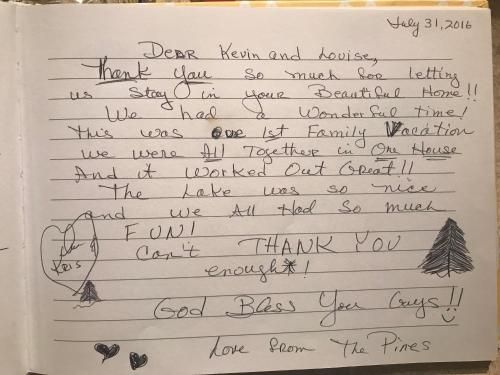 July 31, 2016
Dear Kevin and Louise,
Thank You so much for letting
us Stay in your Beautiful Home!!
We had a Wonderful time!
This was our 1st Family Vacation
we were All Together in One House
And it Worked Out Great!!
The Lake was so nice
and we All Had so much
FUN!
Can't THANK YOU
enough!
God Bless You Guys!!
Love from The Pines
Kris